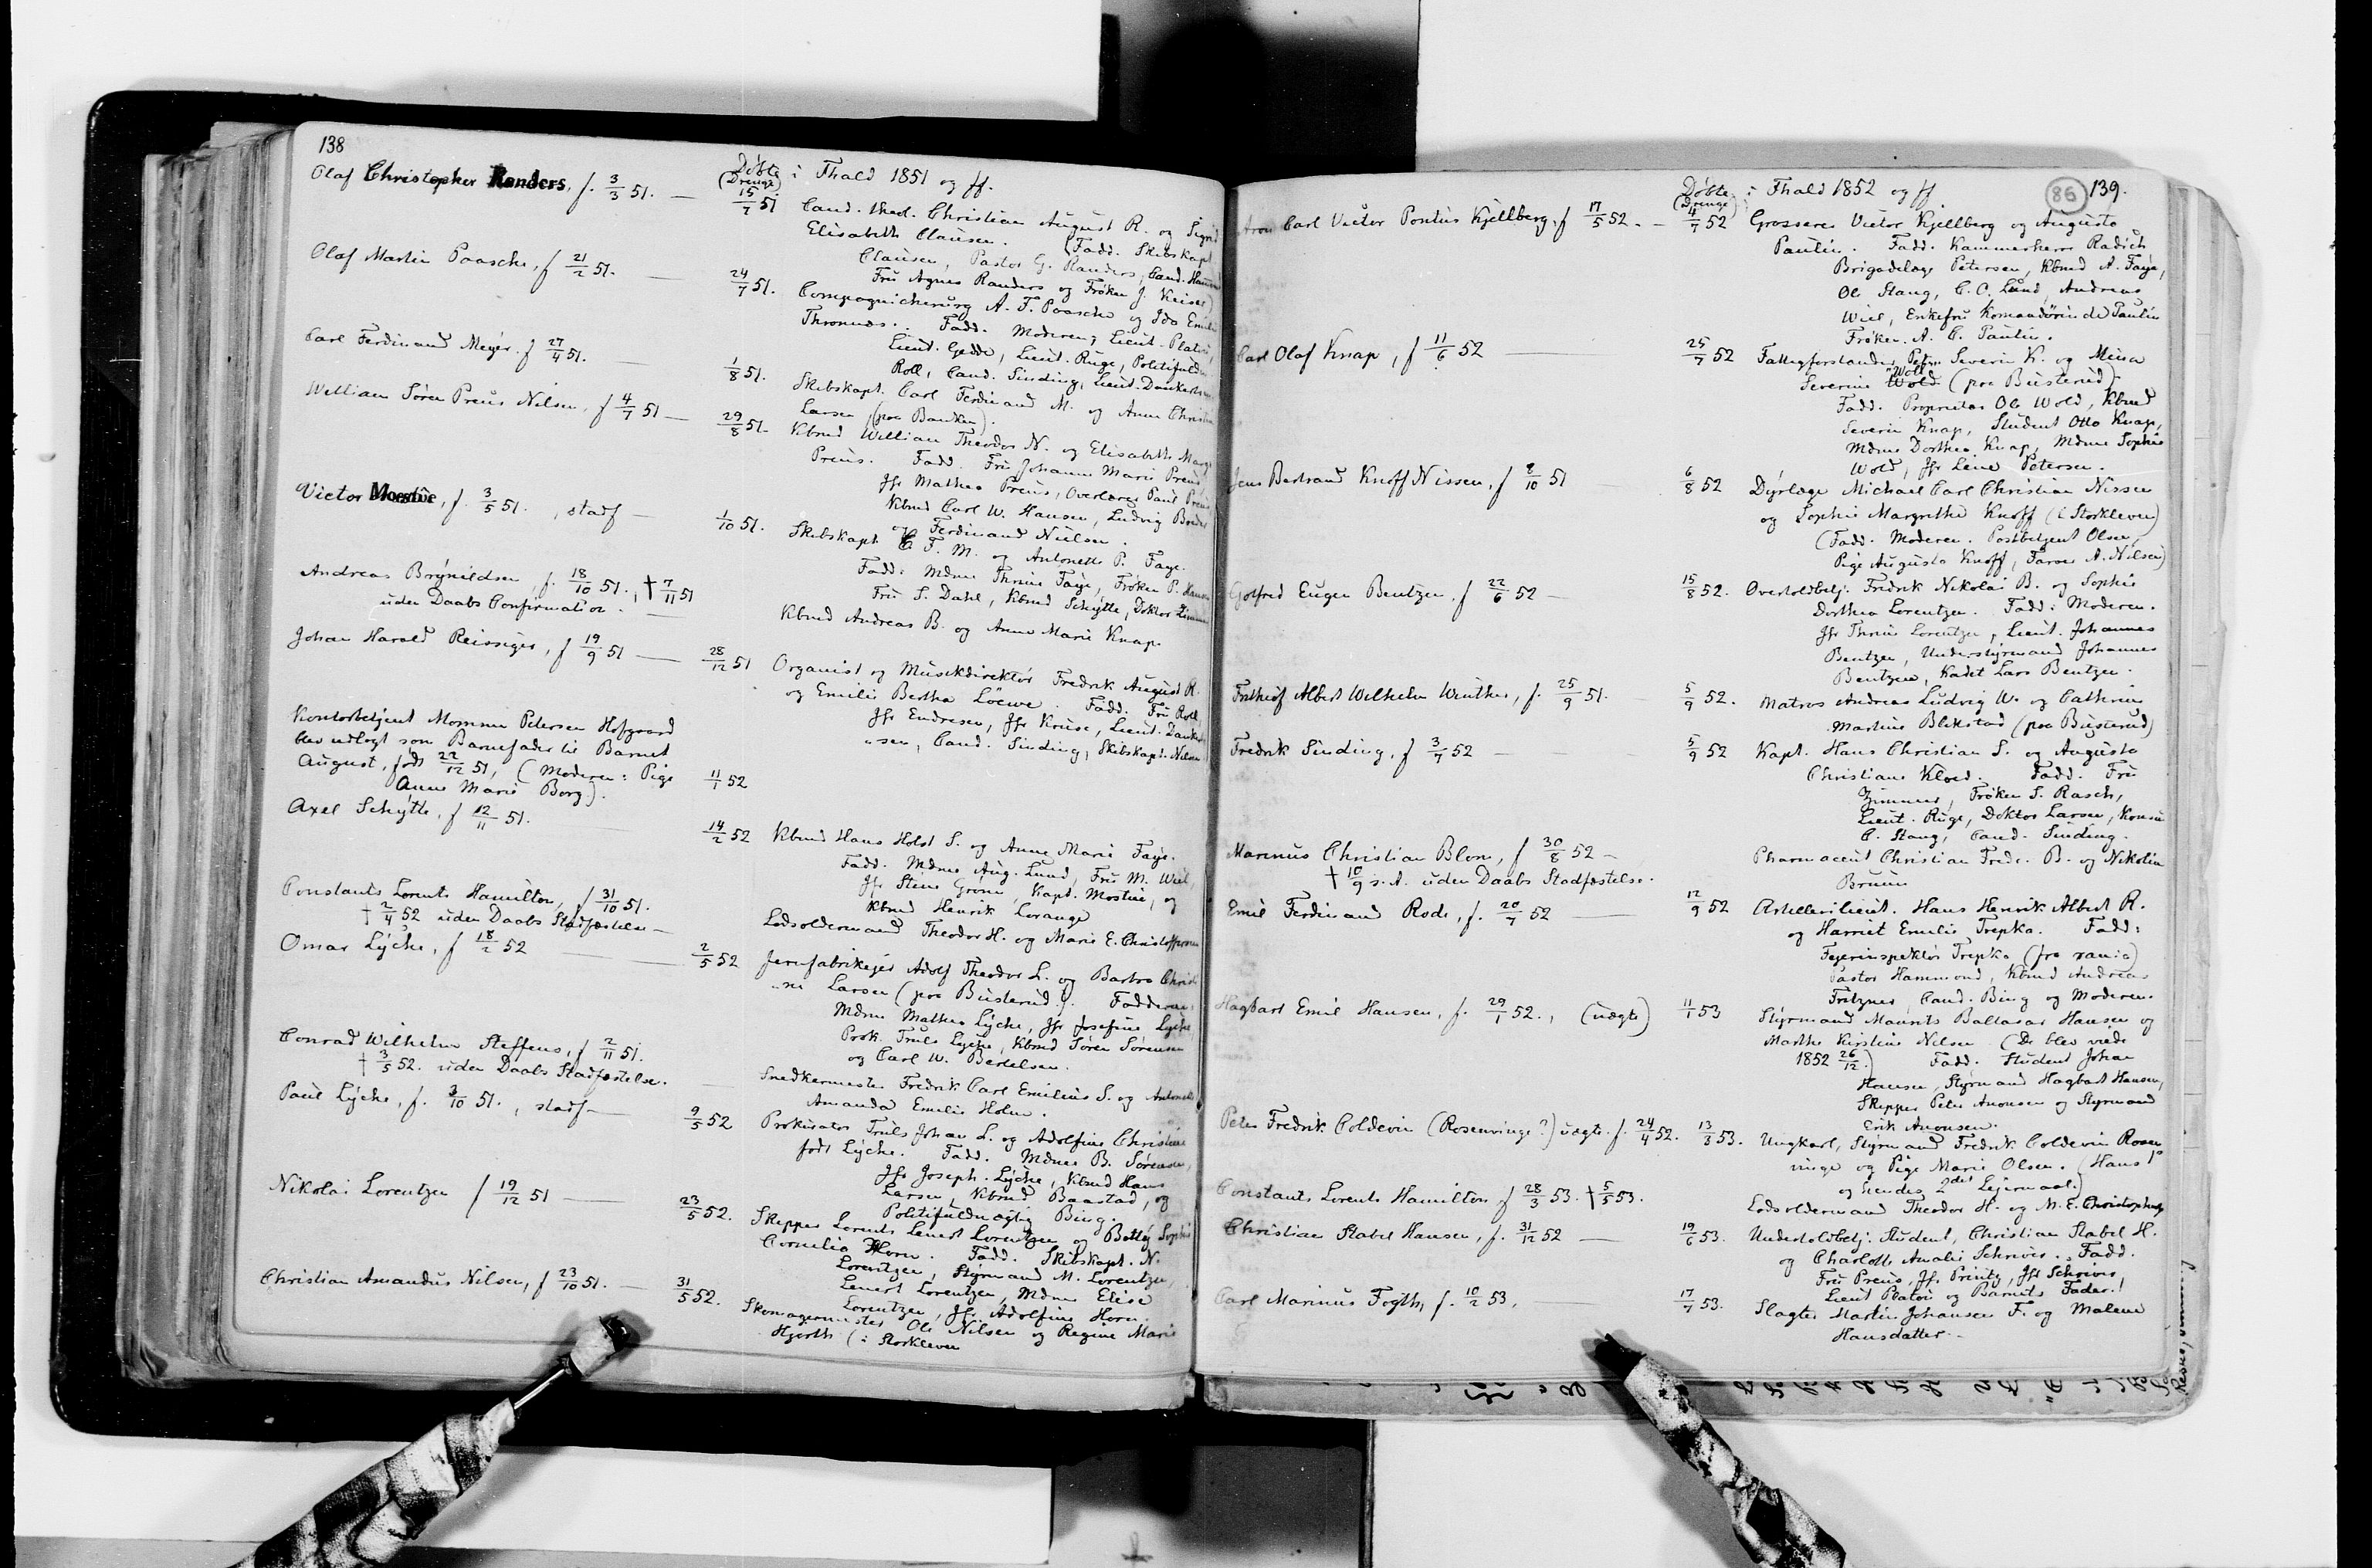 138
Døbte i Fhald 1851 og ff.
(Drenge)
Olaf Christopher Randers, f. 3/3 51. — 15/7 51 Cand. theol. Christian August R. og Sigrid
Elisabeth Clausen. (Fadd. Skibskapt
Clausen, Pastor G. Randers, Cand.
Fru Agnes Randers og Frøken J. Keiser)
Olaf Martin Paasche, f 21/2 51. — 24/7 51. Compagnichirurg A. F. Paasche og Ida Emilie
Thronæs. Fadd. Moderen, Lieut. Platou,
Lieut. Gedde, Lieut. Ruge, Politifuldm
Roll, Cand. Sinding, Lieut. Dankerts
Carl Ferdinand Meyer. f 27/4 51. — 1/8 51. Skibskapt. Carl Ferdinand M. og Anne Christine
Larsen (paa Banken).
William Søren Preus Nilsen, f 4/7 51 — 29/8 51. Kbmd William Theodor N. og Elisabeth Marg
Preus. Fadd. Fru Johanne Marie Preus,
Jfr Mathea Preus, Overlærer Paul Preus
Kbmd Carl W. Hansen, Ludvig
og Ferdinand Nielsen.
Victor Mostue, f. 3/5 51., stadf — 1/10 51. Skibskapt. C F. M. og Antonette P. Faye.
Fadd: Mdme Thrine Faye, Frøken P. Hansen
Fru S. Dahl, Kbmd Schytte, Doktor
Andreas Brynildsen, f. 18/10 51., † 7/11 51
uden Daabs Confirmation. — Kbmd Andreas B. og Anne Marie Knap.
Johan Harald Reissiger, f 19/9 51 — 28/12 51 Organist og Musikdirektør Fredrik August R.
og Emilie Bertha Löewe. Fadd. Fru Roll,
Jfr Endresen, Jfr Kruse, Lieut. Dankert
"sen, Cand. Sinding, Skibskapt. Nilsen
Kontorbetjent Momme Petersen Hofgaard
blev udlagt som Barnefader til Barnet
August, født 22/12 51, (Moderen: Pige 11/1 52
Anne Marie Borg).
Axel Schytte, f 12/11 51. 14/2 52 Kbmd Hans Holst S. og Anne Marie Faye.
Fadd. Mdme Aug. Lund, Fru M. Wiel,
Jfr Stine Grøn, Kapt. Mostue, og
Kbmd Henrik Lorange
Constants Lorents Hamilton, f 31/10 51.
† 2/4 52 uden Daabs Stadfæstelse — Lodsoldermand Theodor H. og Marie E. Christoffersen
Omar Lyche, f 18/2 52 — 2/5 52 Jernfabrikejer Adolf Theodor L. og Barbro Christi
"ne Larsen (paa Busterud). Fadderne:
Mdme Mathea Lyche, Jfr Josefine Lyche,
Prok. Truls Lyche, Kbmd Søren Sørensen
og Carl W. Bertelsen.
Conrad Wilhelm Steffens, f 2/11 51.
† 3/5 52. uden Daabs Stadfæstelse. — Snedkermester Fredrik Carl Emilius S. og Antonette
Amanda Emilie Holm.
Paul Lyche, f. 3/10 51., stadf — 9/5 52 Prokurator Truls Johan L. og Adolfine Christine
født Lyche. Fadd. Mdme B. Sørensen,
Jfr Joseph. Lyche, Kbmd Hans
Larsen, Kbmd Baastad, og
Politifuldmægtig Bing.
Nikolai Lorentzen f 19/12 51 — 23/5 52. Skipper Lorents Lenert Lorentzen og Betty Sophie
Cornelia Horn. Fadd. Skibskapt. N.
Lorentzen, Styrmand M. Lorentzen,
Lenert Lorentzen, Mdme Elise
Lorentzen, Jfr. Adolfine Horn.
Christian Amandus Nilsen, f 23/10 51. — 31/5 52. Skomagermester Ole Nilsen og Regine Marie
Hjorth (i Storkleven
86 139.
Døbte i Fhald 1852 og ff
(Drenge)
Aron Carl Victor Pontus Kjellberg. f 17/5 52. — 4/7 52 Grosserer Victor Kjellberg og Augusta
Paulin. Fadd. Kammerherre Radich
Brigadelæge Petersen, Kbmd A. Faye,
Ole Stang, C. C. Lund, Andreas
Wiel, Enkefru Komandørinde Paulin
Frøken A. C. Paulin.
Carl Olaf Knap, f 11/6 52 — 25/7 52 Fattigforstander Peter Severin K. og Mina
Severine Wold "Woll" (paa Busterud).
Fadd. Proprietær Ole Wold, Kbmd
Severin Knap, Student Otto Knap,
Mdme Dorthea Knap, Mdme Sophie
Wold, Jfr Lene Petersen.
Jens Bertrand Knoff Nissen, f 8/10 51 — 6/8 52 Dyrlæge Michael Carl Christian Nissen
og Sophie Margrethe Knoff (i Storkleven)
(Fadd. Moderen. Postbetjent Olsen,
Pige Augusta Knoff, Farver A. Nilsen)
Gotfred Eugen Bentzen. f 22/6 52 — 15/8 52. Overtoldbetj. Fredrik Nikolai B. og Sophie
Dorthea Lorentzen. Fadd: Moderen.
Jfr Thrine Lorentzen, Lieut. Johannes
Bentzen, Understyrmand Johannes
Bentzen, Kadet Lars Bentzen.
Frithiof Albert Wilhelm Winther, f. 25/9 51. — 5/9 52. Matros Andreas Ludvig W. og Cathrine
Martine Blikstad (paa Busterud)
Fredrik Sinding, f 3/4 52 — 5/9 52 Kapt. Hans Christian S. og Augusta
Christiane Kloed. Fadd. Fru
Zimmer, Frøken S. Rasch,
Lieut. Ruge, Doktor Larsen, Konsul
C. Stang, Cand. Sinding.
Marinus Christian Blom, f 30/8 52 —
† 10/9 s. A. uden Daabs Stadfæstelse. Pharmaceut Christian Fredr. B. og Nikoline
Bruun
Emil Ferdinand Rode, f. 20/7 52 — 12/9 52 Artillerilieut. Hans Henrik Albert R.
og Harriet Emilie Trepka. Fadd:
Fyrinspektør Trepka (fra )
Pastor Hammond, Kbmd Andreas
Fritzner, Cand. Bing og Moderen.
Hagbart Emil Hansen, f. 29/1 52., (uægte) 11/1 53 Styrmand Maurits Baltasar Hansen og
Marthe Kirstine Nilsen (De blev viede
1852 26/12.) Fadd. Student Johan
Hansen, Styrmand Hagbart Hansen,
Skipper Peter Anonsen og Styrmand
Erik Anonsen.
Peter Fredrik Coldevin (Rosenvinge?) uægte. f. 24/4 52. 13/3 53. Ungkarl, Styrmand Fredrik Coldevin Rosen
vinge og Pige Marie Olsen. (Hans 1ste
og hendes 2det Lejermaal.)
Constants Lorents Hamilton f 28/3 53. † 5/5 53. Lodsoldermand Theodor H. og M. E. Christophersen
Christian Stabel Hansen, f. 31/12 52 — 19/6 53. Undertoldbetj. Student, Christian Stabel H.
og Charlotte Amalie Schriver. Fadd.
Fru Preus, Jfr. Printz, Jfr Schriver,
Lieut Platou og Barnets Fader.
Carl Marinus Fogth, f. 10/2 53, — 17/7 53. Slagter Martin Johansen F. og Malene
Hansdatter.